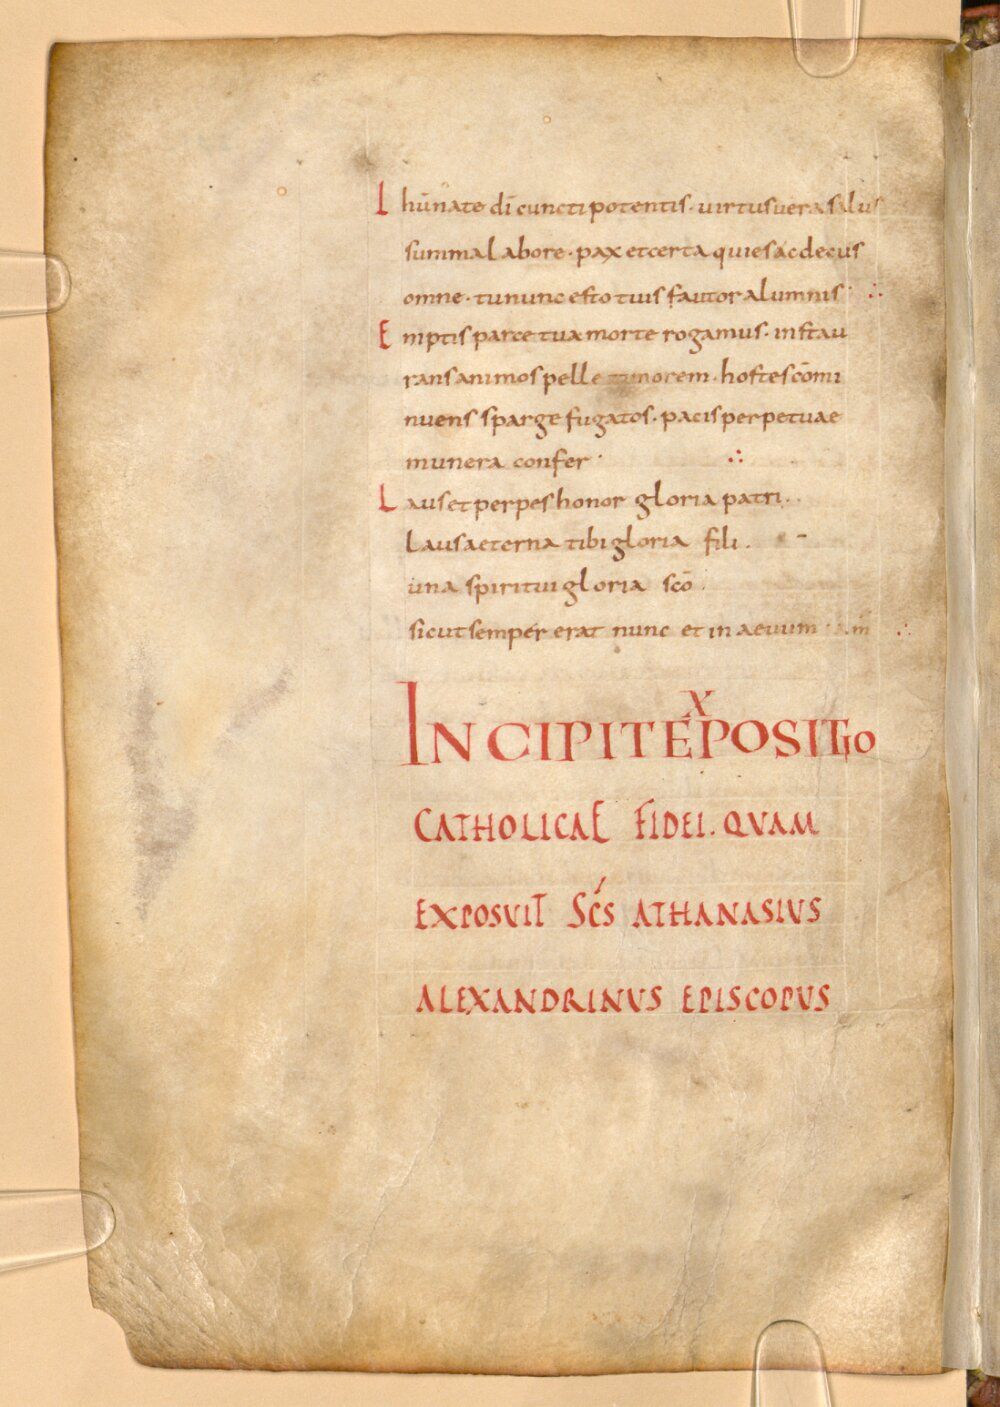 I hū nate dī cunctipotentis · uirtus uera salus
summa labore · pax et certa quies ac decus
omne · tu nunc esto tuis fautor alumnis ∴
Emptis parce tua morte rogamus · instau
rans animos pelle timorem · hostes cōmi
nuens sparge fugatos · pacis perpetuae
munera confer · ∴
Laus et perpes honor gloria patri ..
Laus aeterna tibi gloria fili .
una spiritui gloria scō .
sicut semper erat nunc et in aeuum . am̄ ∴
INCIPIT EXPOSITIO
CATHOLICAE FIDEI. QVAM
EXPOSVIT SCS ATHANASIVS
ALEXANDRINVS EPISCOPVS